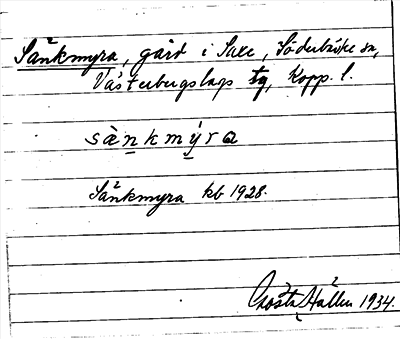 Sänkmyra, gård i Saxe, Söderbärke sn,
Västerbergslags tg, Kopp. l.
sä̀nkmýra
Sänkmyra kb 1928.
Gösta Hallén 1934.